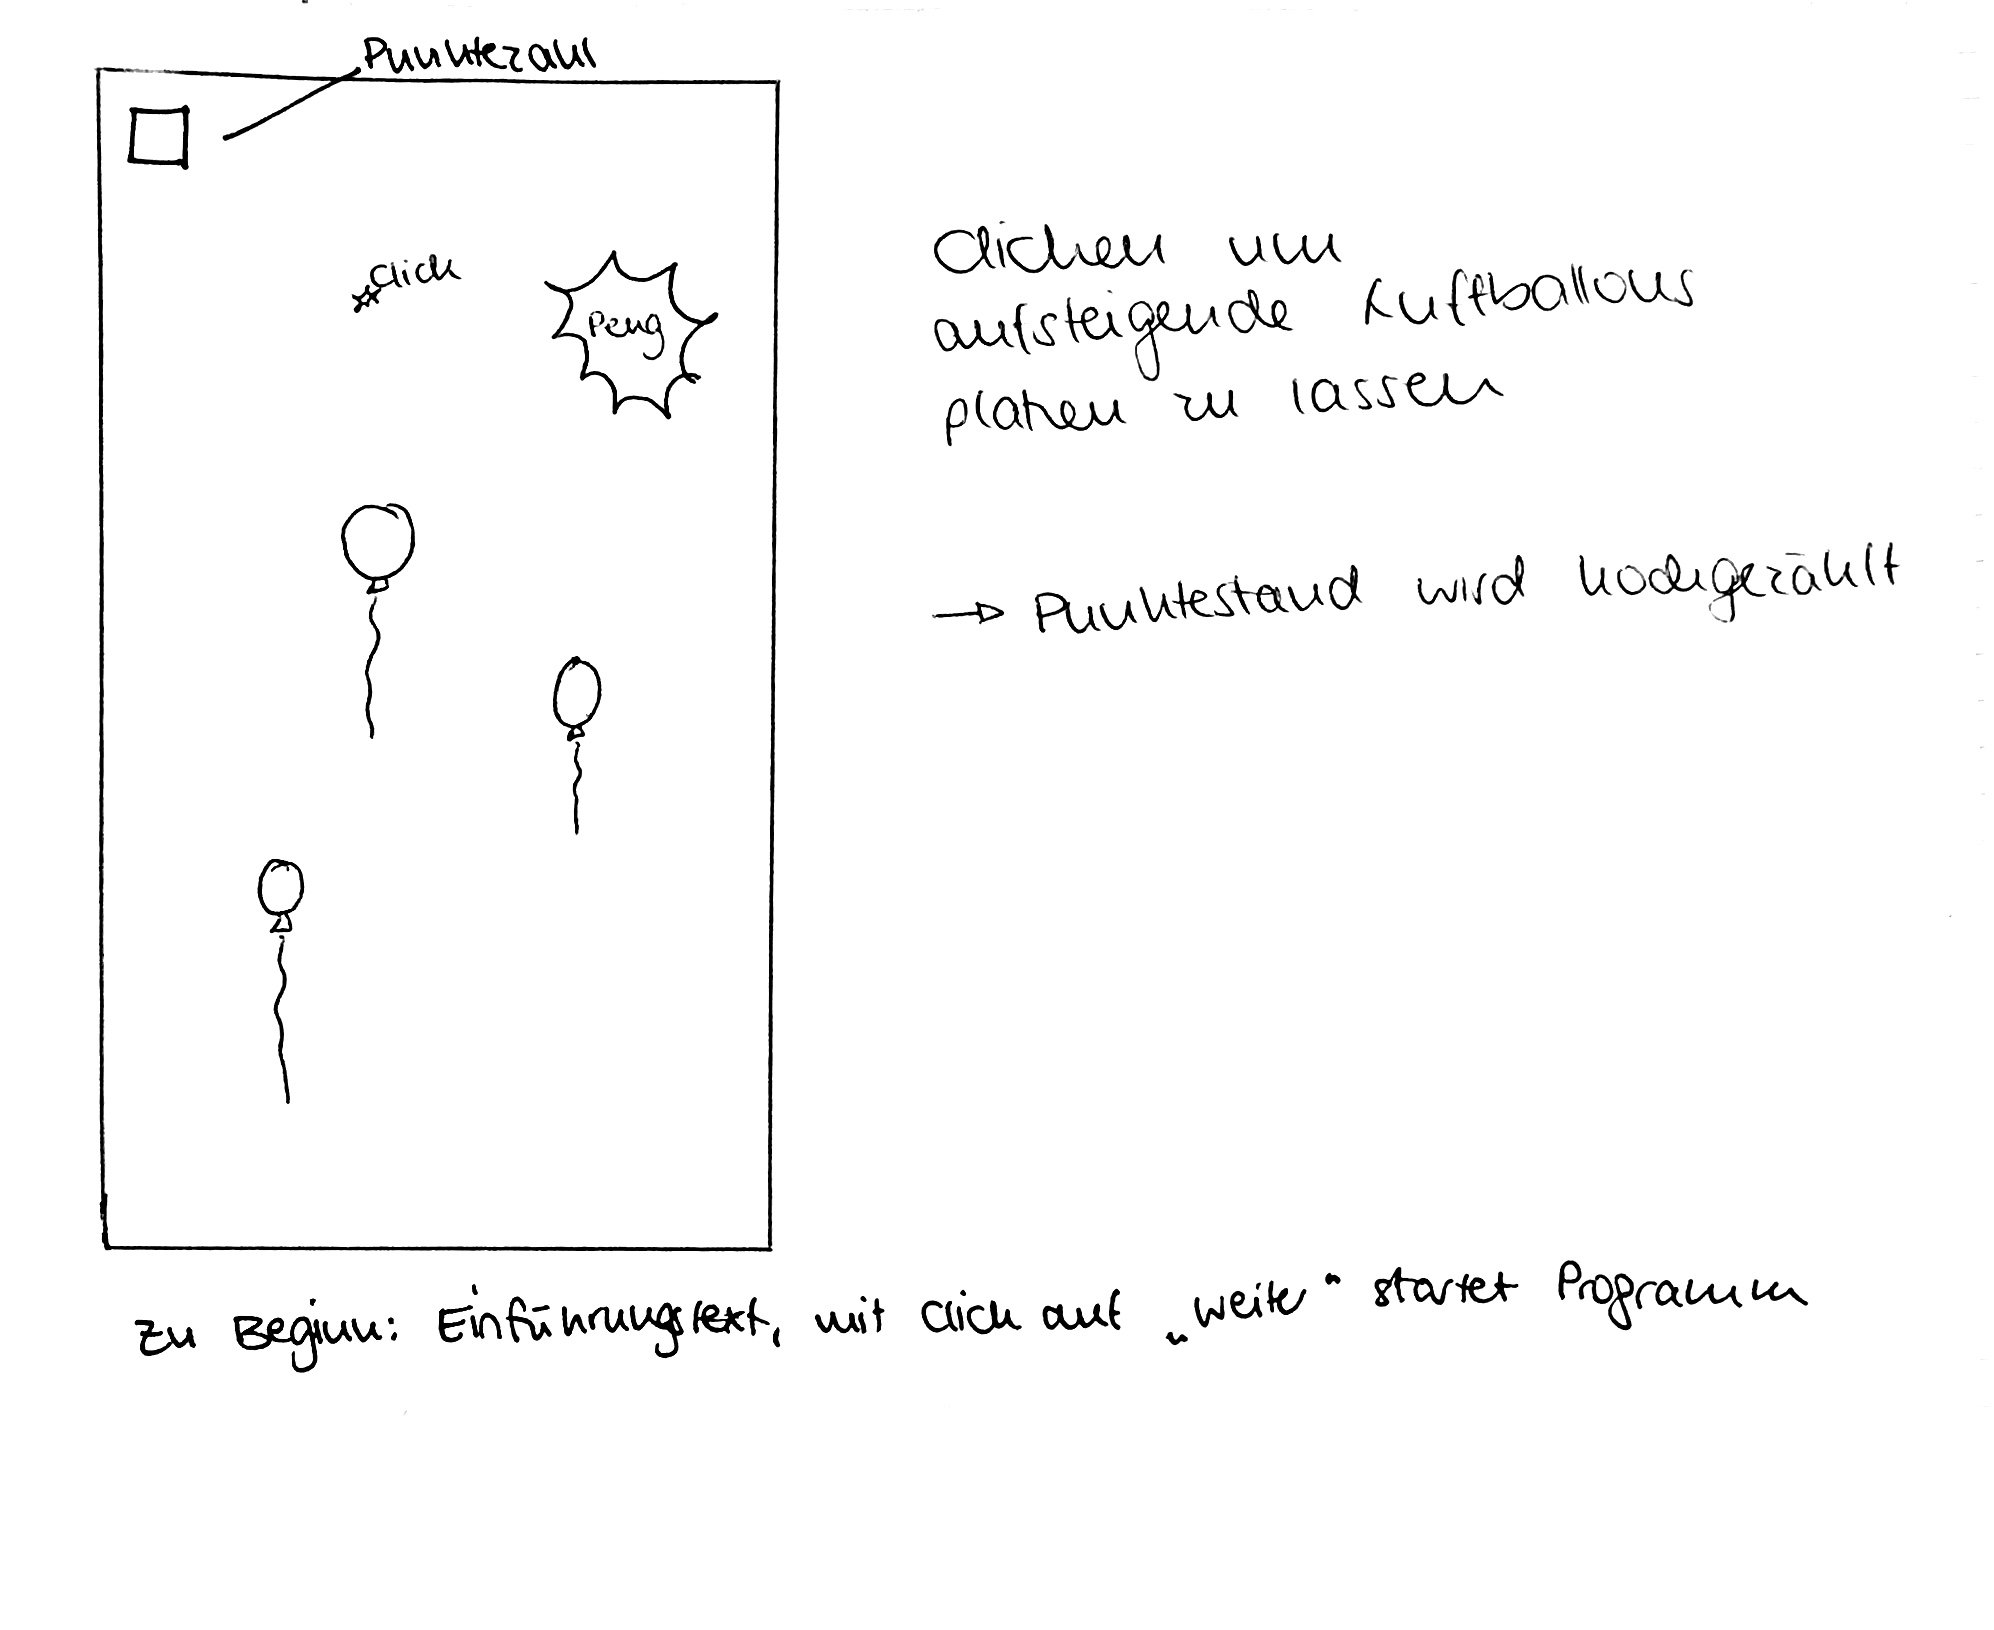 Punktezahl
click
Peng
clicken um
aufsteigende Luftballons
platzen zu lassen
→ Punktestand wird hochgezählt
zu Beginn: Einführungstext, mit click auf „weiter“ startet Programm